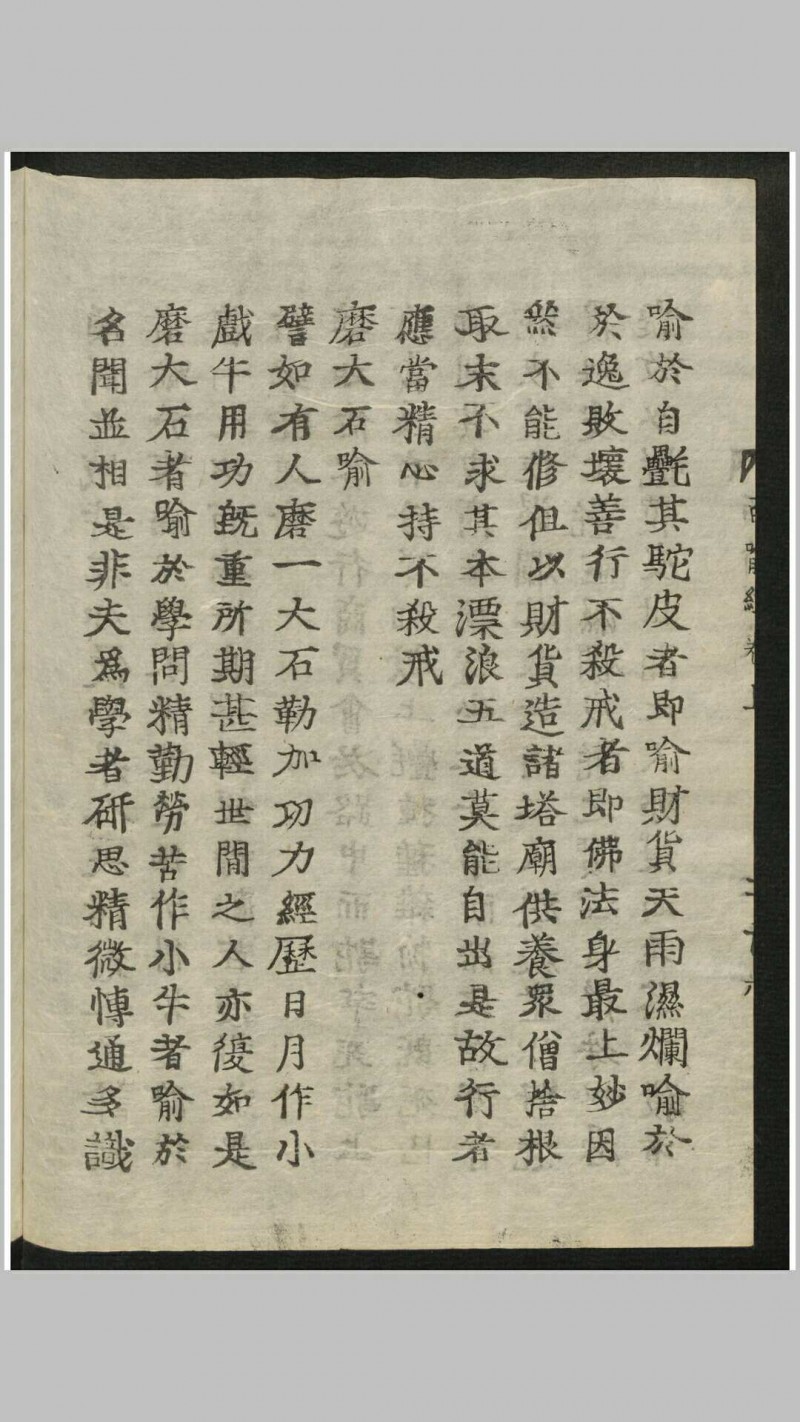 百喻經卷上
喻於自㲲其駝皮者即喻財貨天雨濕爛喻於
於逸敗壞善行不殺戒者即佛法身最上妙因
然不能修但以財貨造諸塔廟供養眾僧捨根
取末不求其本漂浪五道莫能自出是故行者
應當精心持不殺戒
磨大石喻
譬如有人磨一大石勤加功力經歷日月作小
戲牛用功既重所期甚輕世間之人亦復如是
磨大石者喻於學問精勤勞苦作小牛者喻於
名聞並相是非夫為學者研思精微博通多識